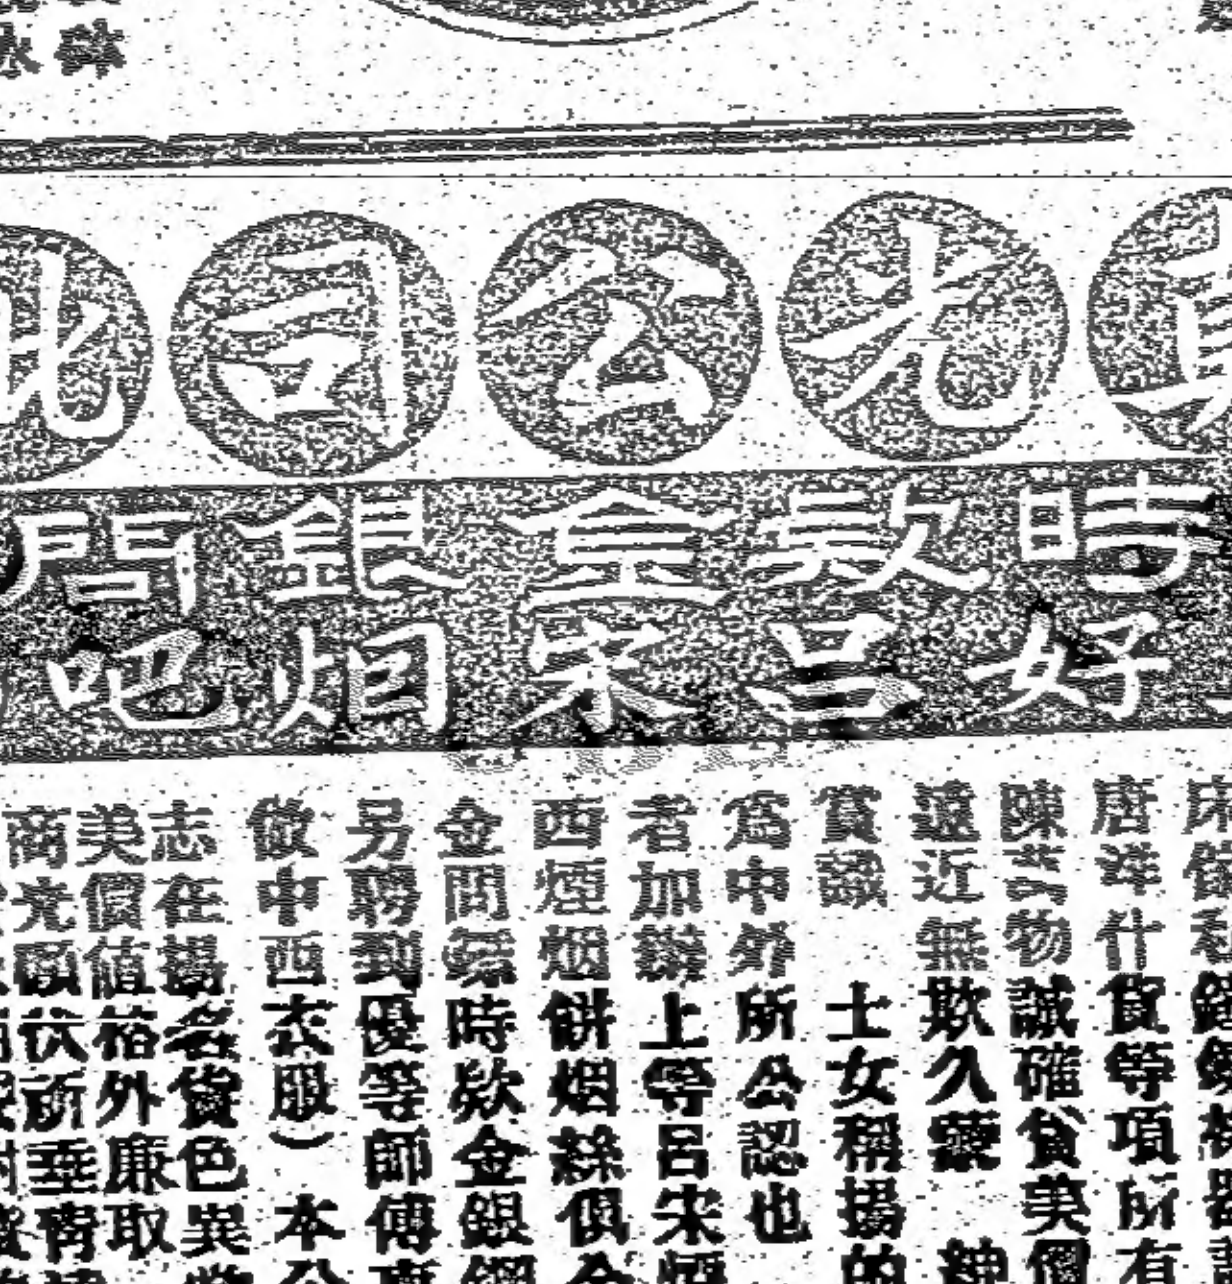 真光公司
時欵金銀間
好呂宋烟吧
唐洋什貨等項所有
物誠確貨美價
遠近無欺久蒙 紳
賞識 士女稱揚的
爲中外 所公認也
者加辦上等呂宋煙
西煙烟餅烟絲俱全
金間鑲時欵金銀
另聘到優等師傅專
做中西衣服） 本公
志在揚名貨色異
美價值格外廉取
商光顧伏所垂靑